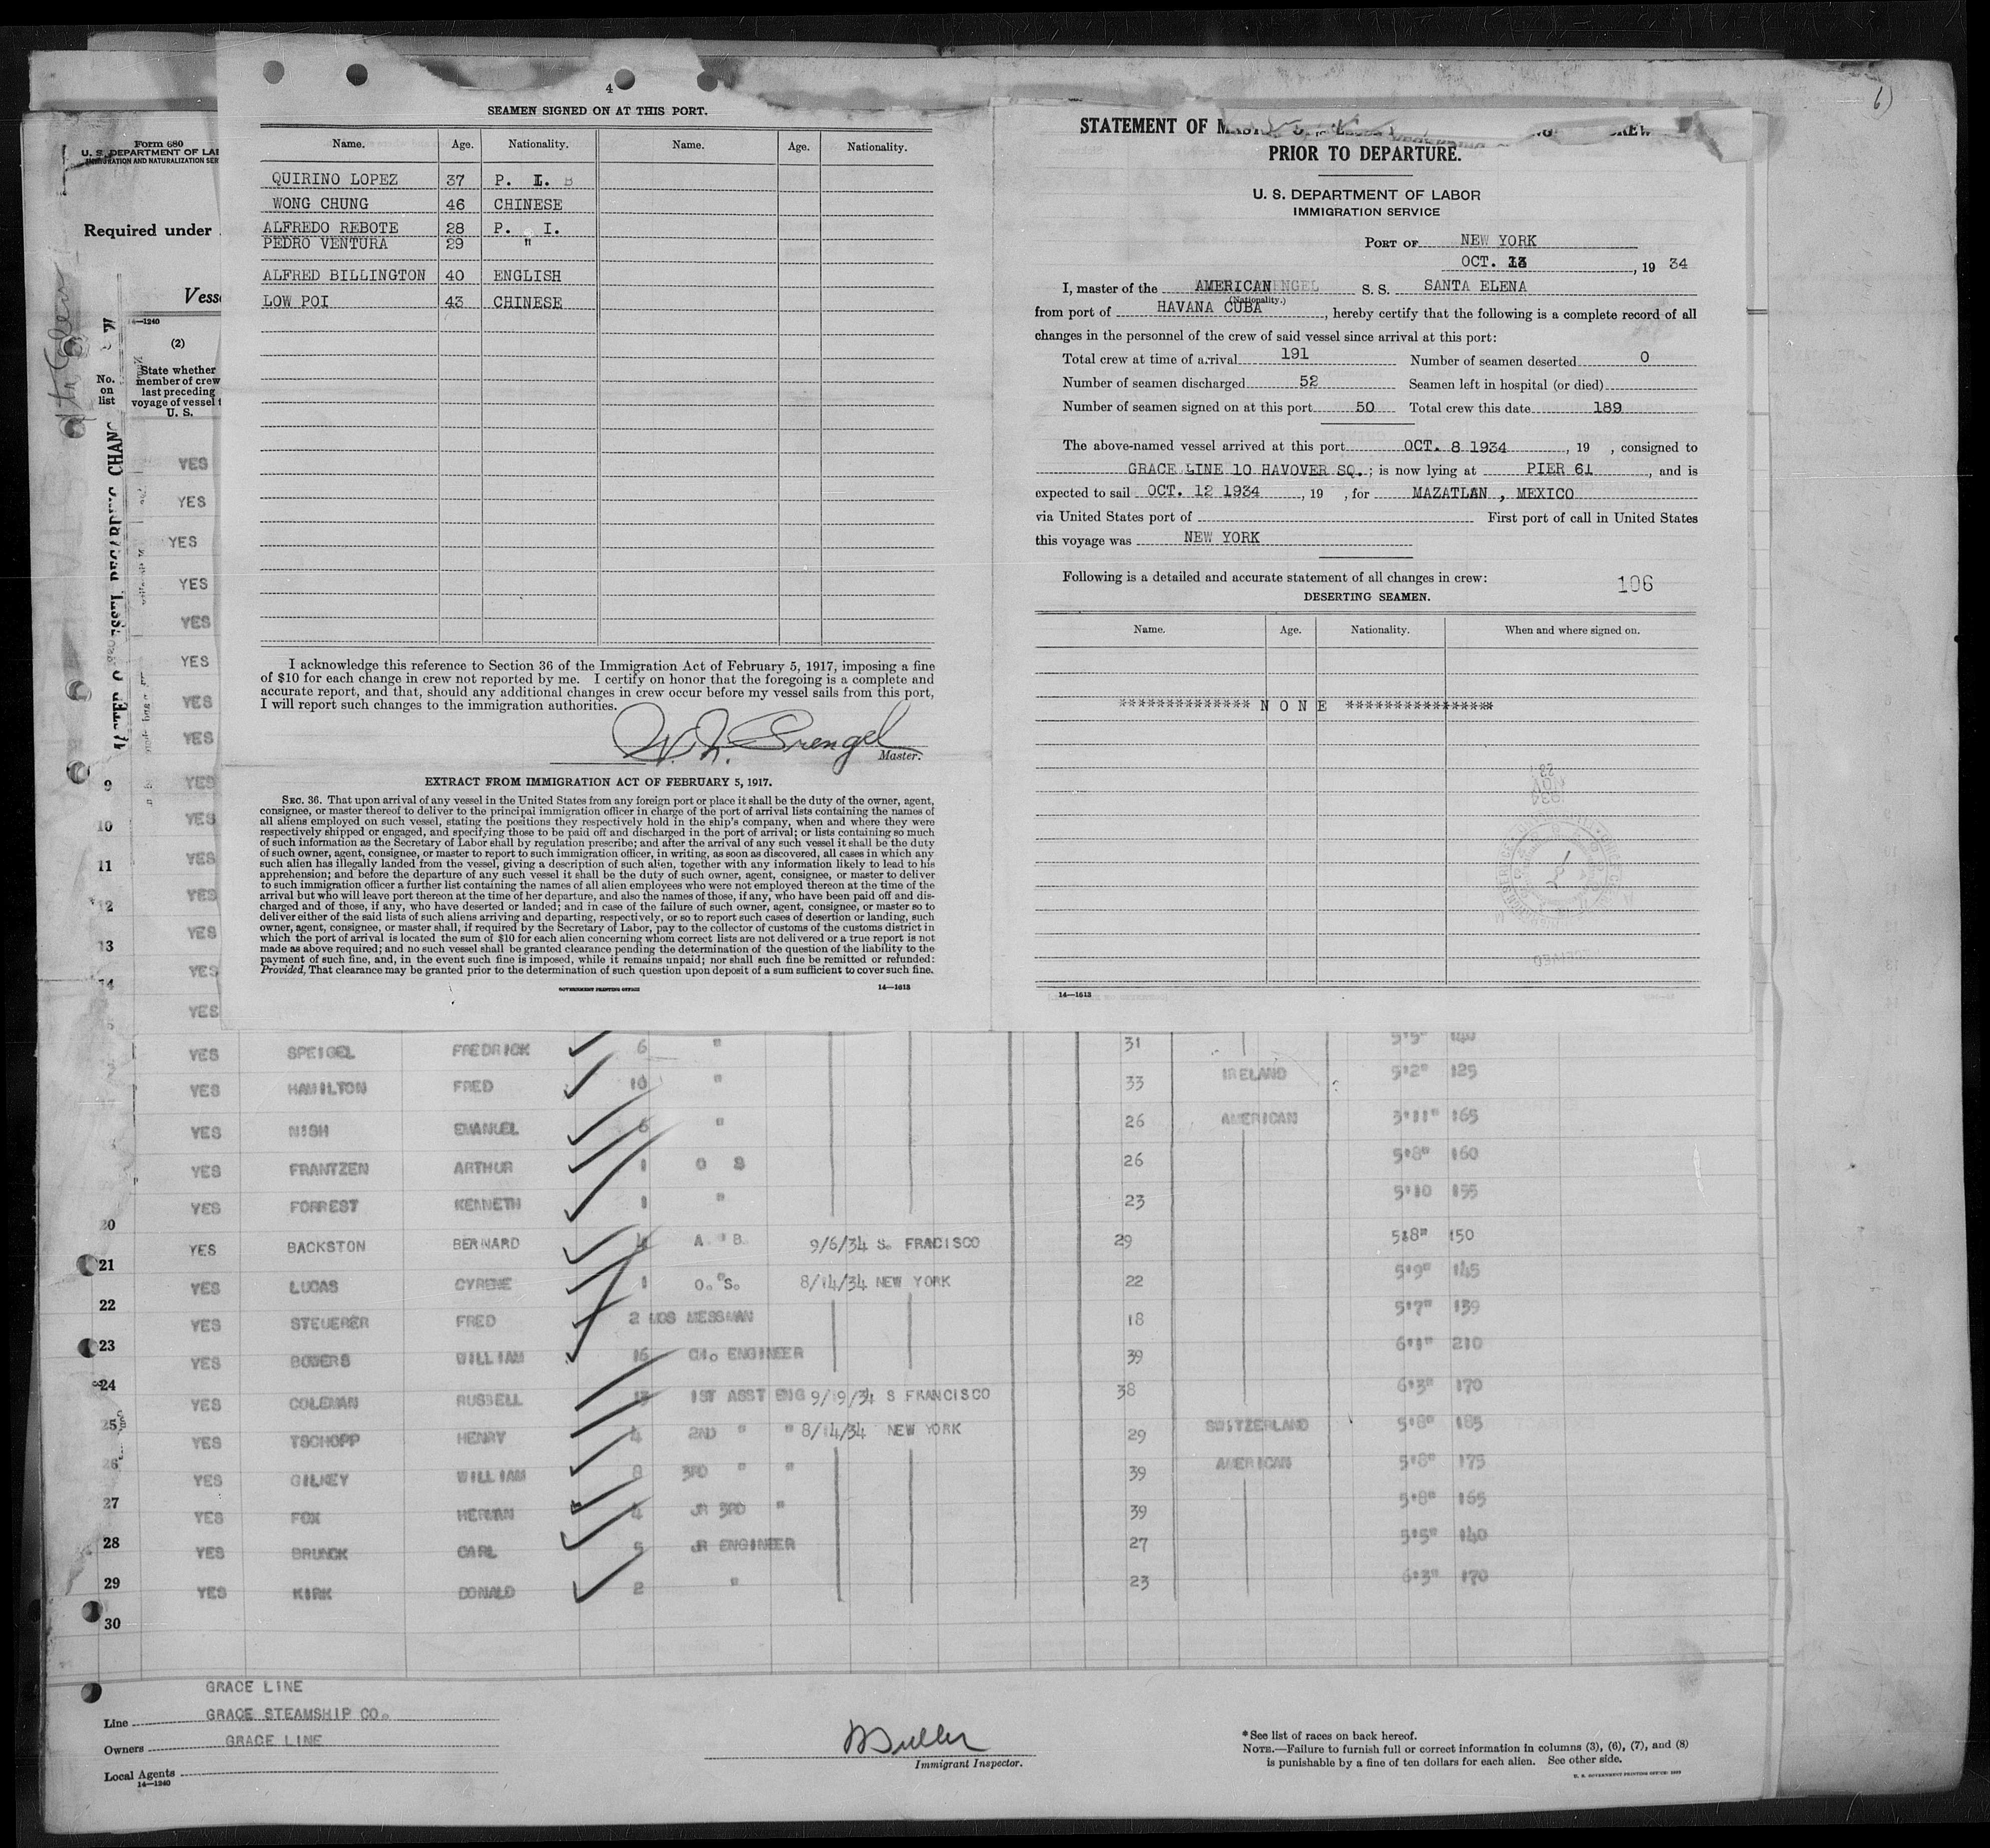 6)
Form 680
U. S. DEPARTMENT OF LA
IMMIGRATION AND NATURALIZATION SER
Required under
Vess
14—1240
(2)
No. on list
State whether
member of crew
last preceding
voyage of vessel t
U. S.
YES
YES
YES
YES
YES
YES
YES
YES
9 YES
10 YES
11 YES
12 YES
13 YES
14 YES
YES
4
SEAMEN SIGNED ON AT THIS PORT.
Name. Age. Nationality. Name. Age. Nationality.
QUIRINO LOPEZ 37 P. I.
WONG CHUNG 46 CHINESE
ALFREDO REBOTE 28 P. I.
PEDRO VENTURA 29 "
ALFRED BILLINGTON 40 ENGLISH
LOW POI 43 CHINESE
I acknowledge this reference to Section 36 of the Immigration Act of February 5, 1917, imposing a fine
of $10 for each change in crew not reported by me. I certify on honor that the foregoing is a complete and
accurate report, and that, should any additional changes in crew occur before my vessel sails from this port,
I will report such changes to the immigration authorities.
Master.
EXTRACT FROM IMMIGRATION ACT OF FEBRUARY 5, 1917.
SEC. 36. That upon arrival of any vessel in the United States from any foreign port or place it shall be the duty of the owner, agent,
consignee, or master thereof to deliver to the principal immigration officer in charge of the port of arrival lists containing the names of
all aliens employed on such vessel, stating the positions they respectively hold in the ship's company, when and where they were
respectively shipped or engaged, and specifying those to be paid off and discharged in the port of arrival; or lists containing so much
of such information as the Secretary of Labor shall by regulation prescribe; and after the arrival of any such vessel it shall be the duty
of such owner, agent, consignee, or master to report to such immigration officer, in writing, as soon as discovered, all cases in which any
such alien has illegally landed from the vessel, giving a description of such alien, together with any information likely to lead to his
apprehension; and before the departure of any such vessel it shall be the duty of such owner, agent, consignee, or master to deliver
to such immigration officer a further list containing the names of all alien employees who were not employed thereon at the time of the
arrival but who will leave port thereon at the time of her departure, and also the names of those, if any, who have been paid off and dis-
charged and of those, if any, who have deserted or landed; and in case of the failure of such owner, agent, consignee, or master so to
deliver either of the said lists of such aliens arriving and departing, respectively, or so to report such cases of desertion or landing, such
owner, agent, consignee, or master shall, if required by the Secretary of Labor, pay to the collector of customs of the customs district in
which the port of arrival is located the sum of $10 for each alien concerning whom correct lists are not delivered or a true report is not
made as above required; and no such vessel shall be granted clearance pending the determination of the question of the liability to the
payment of such fine, and, in the event such fine is imposed, while it remains unpaid; nor shall such fine be remitted or refunded:
Provided, That clearance may be granted prior to the determination of such question upon deposit of a sum sufficient to cover such fine.
GOVERNMENT PRINTING OFFICE 14—1613
STATEMENT OF
PRIOR TO DEPARTURE.
U. S. DEPARTMENT OF LABOR
IMMIGRATION SERVICE
PORT OF NEW YORK
OCT. 13, 19 34
I, master of the AMERICAN S. S. SANTA ELENA
(Nationality.)
from port of HAVANA CUBA, hereby certify that the following is a complete record of all
changes in the personnel of the crew of said vessel since arrival at this port:
Total crew at time of arrival 191 Number of seamen deserted 0
Number of seamen discharged 52 Seamen left in hospital (or died)
Number of seamen signed on at this port 50 Total crew this date 189
The above-named vessel arrived at this port OCT. 8 1934, 19 , consigned to
GRACE LINE 10 HAVOVER SQ. ; is now lying at PIER 61, and is
expected to sail OCT. 12 1934, 19 , for MAZATLAN , MEXICO
via United States port of First port of call in United States
this voyage was NEW YORK
Following is a detailed and accurate statement of all changes in crew: 106
DESERTING SEAMEN.
Name. Age. Nationality. When and where signed on.
************** N O N E ****************
14—1613
YES SPEIGEL FREDRICK 6 " 31 5'5" 140
YES HAMILTON FRED 10 " 33 IRELAND 5'2" 125
YES NISH EMANUEL 6 " 26 AMERICAN 5'11" 165
YES FRANTZEN ARTHUR 1 O S 26 5'8" 160
YES FORREST KENNETH 1 " 23 5'10 155
20
YES BACKSTON BERNARD 4 A B 9/6/34 S. FRACISCO 29 5'8" 150
21
YES LUCAS CYRENE 1 O. S. 8/14/34 NEW YORK 22 5'9" 145
22
YES STEUERER FRED 2 MOS MESSMAN 18 5'7" 139
23
YES BOWERS WILLIAM 16 CH. ENGINEER 39 6'1" 210
24
YES COLEMAN RUSSELL 13 1ST ASST ENG 9/19/34 S FRANCISCO 38 6'3" 170
25
YES TSCHOPP HENRY 4 2ND " " 8/14/34 NEW YORK 29 SWITZERLAND 5'8" 185
26
YES GILNEY WILLIAM 8 3RD " " 39 AMERICAN 5'8" 175
27
YES FOX HERMAN 4 JR 3RD " 39 5'8" 165
28
YES BRUNCK CARL 5 JR ENGINEER 27 5'5" 140
29
YES KIRK DONALD 2 " 23 6'3" 170
30
GRACE LINE
Line GRACE STEAMSHIP CO.
Owners GRACE LINE
Local Agents
14—1240
Immigrant Inspector.
*See list of races on back hereof.
NOTE.—Failure to furnish full or correct information in columns (3), (6), (7), and (8)
is punishable by a fine of ten dollars for each alien. See other side.
U. S. GOVERNMENT PRINTING OFFICE: 1933